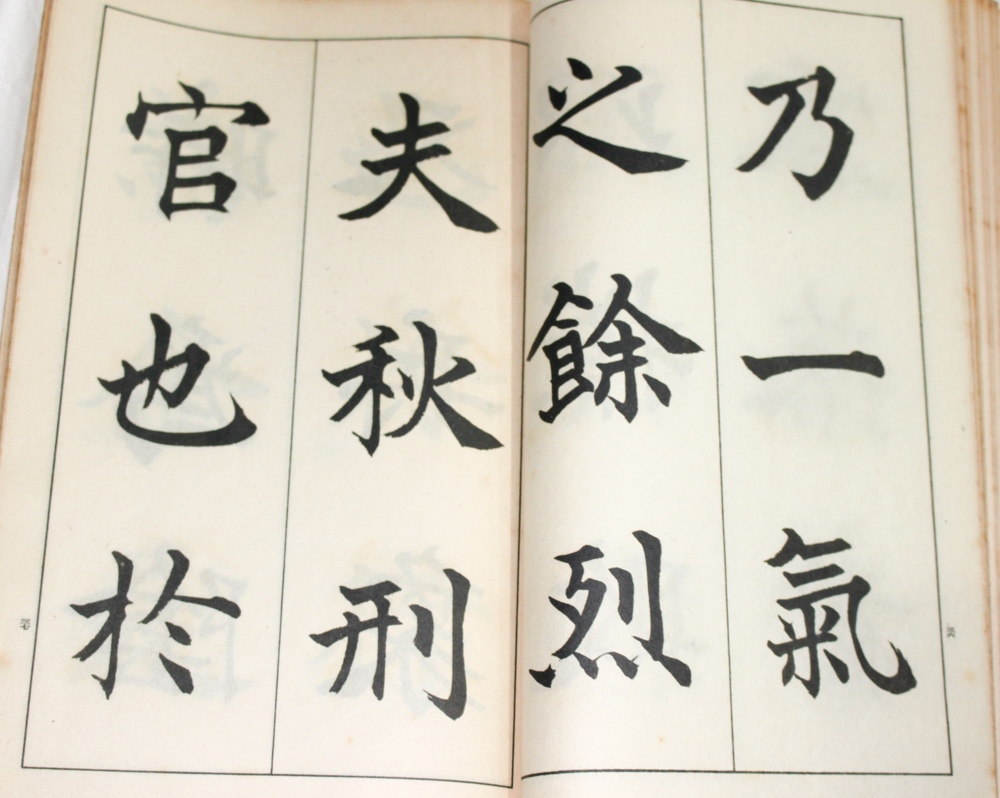 乃一氣
之餘烈
夫秋刑
官也於